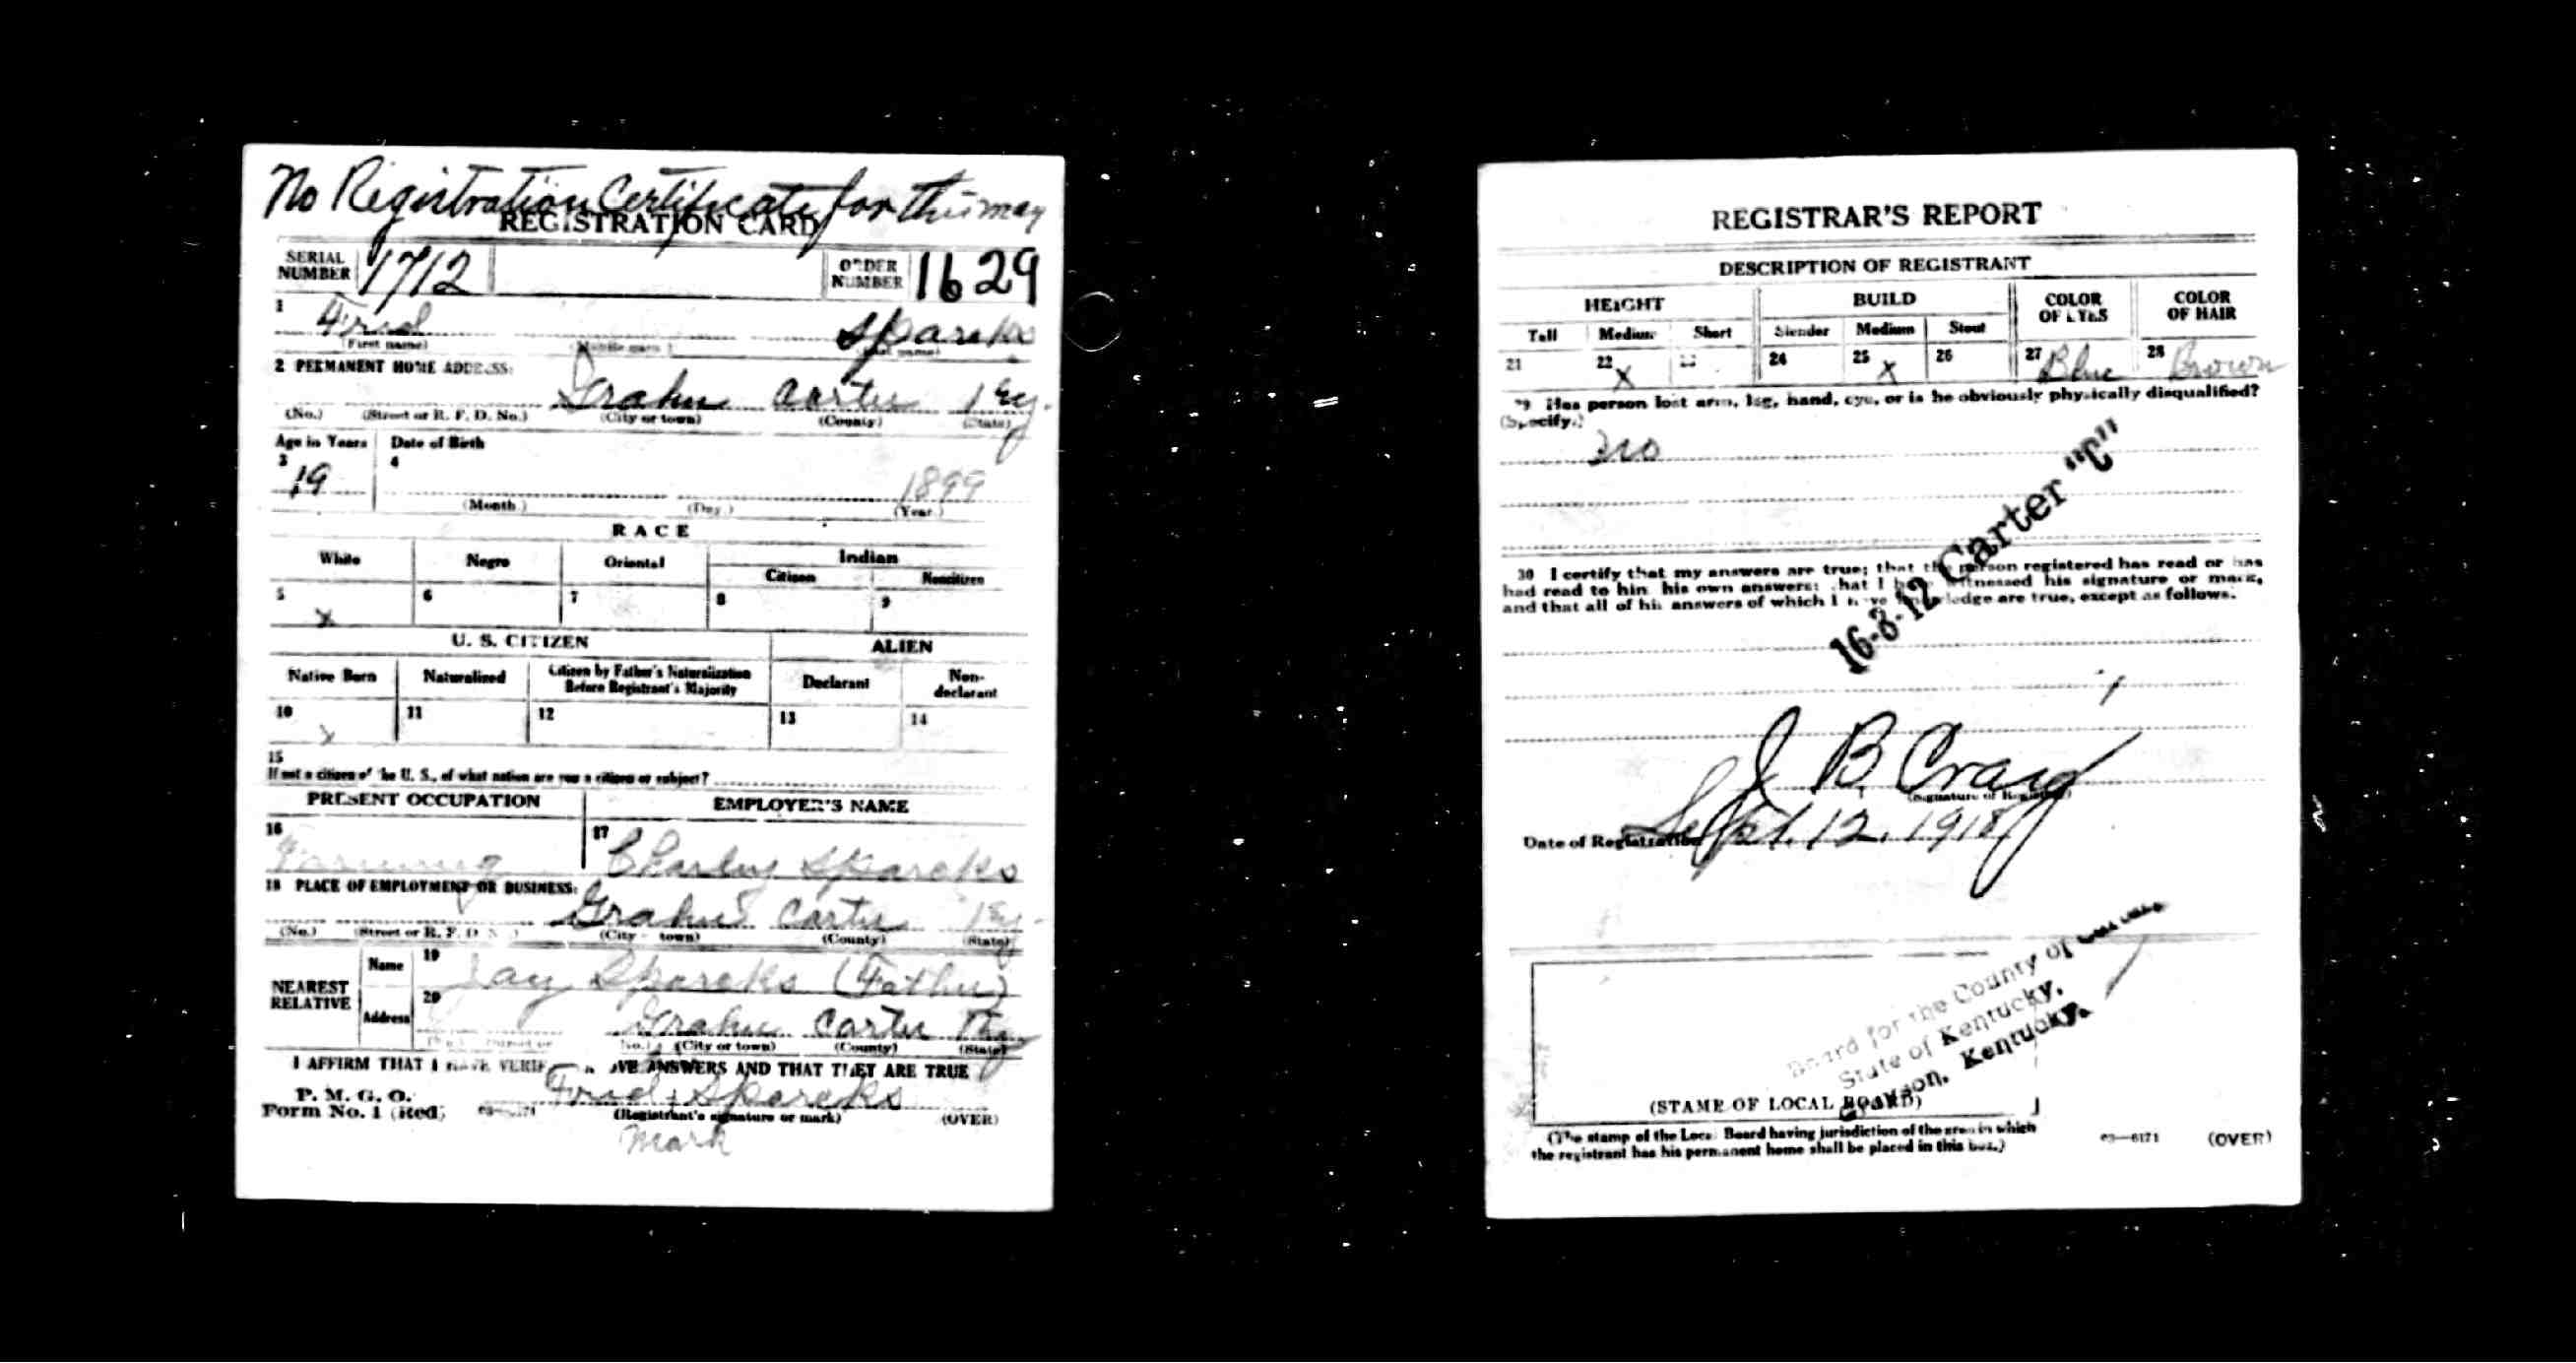 No Registration Certificate for this man
REGISTRATION CARD
SERIAL NUMBER 1712 ORDER NUMBER 1629
1 Fred Sparcks
(First name) (Middle name) (Last name)
2 PERMANENT HOME ADDRESS:
Grahn Carter Ky.
(No.) (Street or R. F. D. No.) (City or town) (County) (State)
Age in Years Date of Birth
3 19 4 1899
(Month.) (Day.) (Year.)
RACE
White Negro Oriental Indian
Citizen Noncitizen
5 x 6 7 8 9
U. S. CITIZEN ALIEN
Native Born Naturalized Citizen by Father's Naturalization Before Registrant's Majority Declarant Non-declarant
10 x 11 12 13 14
15
If not a citizen of the U. S., of what nation are you a citizen or subject?
PRESENT OCCUPATION EMPLOYER'S NAME
16 Farming 17 Charley Sparcks
18 PLACE OF EMPLOYMENT OR BUSINESS:
Grahn Carter Ky.
(No.) (Street or R. F. D. No.) (City or town) (County) (State)
NEAREST RELATIVE Name 19 Jay Sparcks (Father)
Address 20 Grahn Carter Ky
(City or town) (County) (State)
I AFFIRM THAT I HAVE VERIFIED ABOVE ANSWERS AND THAT THEY ARE TRUE
P. M. G. O.
Form No. 1 (Red) 03—6171 Fred x Sparcks
(Registrant's signature or mark) (OVER)
Mark
REGISTRAR'S REPORT
DESCRIPTION OF REGISTRANT
HEIGHT BUILD COLOR OF EYES COLOR OF HAIR
Tall Medium Short Slender Medium Stout
21 22 x 23 24 25 x 26 27 Blue 28 Brown
29 Has person lost arm, leg, hand, eye, or is he obviously physically disqualified?
(Specify.)
no
16-3-12 Carter "C"
30 I certify that my answers are true; that the person registered has read or has
had read to him his own answers; that I have witnessed his signature or mark,
and that all of his answers of which I have knowledge are true, except as follows:
J. B. Craig
(Signature of Registrar)
Date of Registration Sept. 12, 1918
Board for the County of Carter,
State of Kentucky,
Grayson, Kentucky.
(STAMP OF LOCAL BOARD)
(The stamp of the Local Board having jurisdiction of the area in which
the registrant has his permanent home shall be placed in this box.)
03—6171 (OVER)